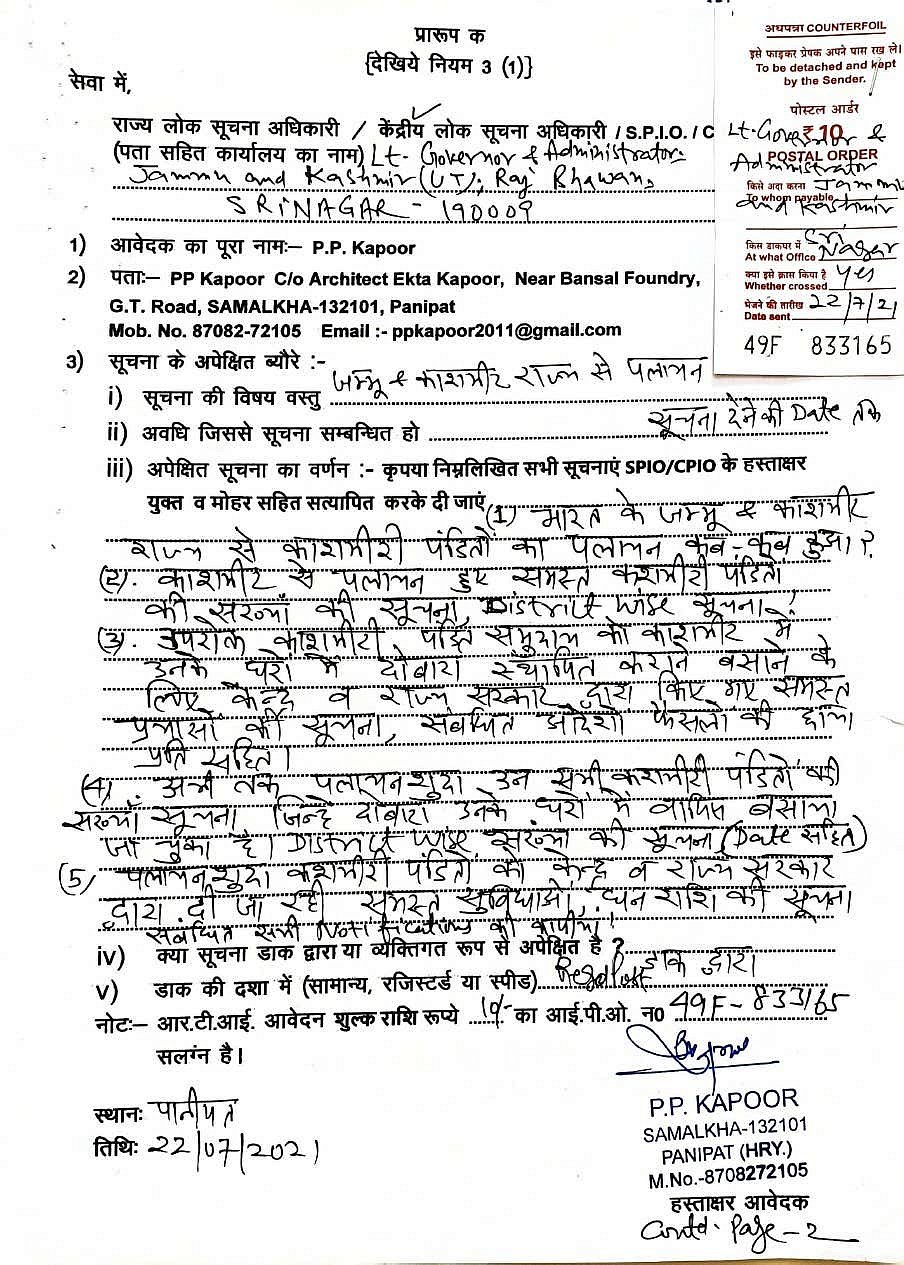 प्रारूप क
{देखिये नियम 3 (1)}
सेवा में,
राज्य लोक सूचना अधिकारी / केंद्रीय लोक सूचना अधिकारी / S.P.I.O. / C
(पता सहित कार्यालय का नाम) Lt. Governor & Administrator
Jammu and Kashmir (UT), Raj Bhawan,
SRINAGAR - 190009
अधपन्ना COUNTERFOIL
इसे फाड़कर प्रेषक अपने पास रख ले।
To be detached and kept
by the Sender.
पोस्टल आर्डर
₹ 10
POSTAL ORDER
Lt. Governor &
Administrator
किसे अदा करना Jammu
To whom payable
and Kashmir
किस डाकघर में Sri
At what Office Nagar
क्या इसे क्रास किया है Yes
Whether crossed
भेजने की तारीख 22/7/21
Date sent
49F 833165
1) आवेदक का पूरा नामः– P.P. Kapoor
2) पताः– PP Kapoor C/o Architect Ekta Kapoor, Near Bansal Foundry,
G.T. Road, SAMALKHA-132101, Panipat
Mob. No. 87082-72105 Email :- ppkapoor2011@gmail.com
3) सूचना के अपेक्षित ब्यौरे :-
i) सूचना की विषय वस्तु जम्मू & काशमीर राज्य से पलायन
ii) अवधि जिससे सूचना सम्बन्धित हो सूचना देने की Date तक
iii) अपेक्षित सूचना का वर्णन :- कृपया निम्नलिखित सभी सूचनाएं SPIO/CPIO के हस्ताक्षर
युक्त व मोहर सहित सत्यापित करके दी जाएं (1) भारत के जम्मू & काशमीर
राज्य से काशमीरी पंडितों का पलायन कब-कब हुआ?
(2). काशमीर से पलायन हुए समस्त कशमीरी पंडितों
की संख्या की सूचना, District wise सूचना।
(3). उपरोक्त काशमीरी पंडित समुदाय को काशमीर में
उनके घरों में दोबारा स्थापित कराने बसाने के
लिए केन्द्र व राज्य सरकार द्वारा किए गए समस्त
प्रयासों की सूचना, संबंधित आदेशों फैसलों की छाया
प्रति सहित।
(4). अभी तक पलायनशुदा उन सभी कशमीरी पंडितों की
संख्या सूचना जिन्हें दोबारा उनके घरों में वापिस बसाया
जा चुका है। District wise संख्या की सूचना (Date सहित)
(5) पलायनशुदा कशमीरी पंडितों को केन्द्र व राज्य सरकार
द्वारा दी जा रही समस्त सुविधाओं, धन राशि की सूचना
संबंधित सभी Notifications की कापीयां।
iv) क्या सूचना डाक द्वारा या व्यक्तिगत रूप से अपेक्षित है ? डाक द्वारा
v) डाक की दशा में (सामान्य, रजिस्टर्ड या स्पीड) Regd Post
नोटः– आर.टी.आई. आवेदन शुल्क राशि रूप्ये 10/- का आई.पी.ओ. न0 49F-833165
सलग्न है।
स्थानः पानीपत
तिथिः 22/07/2021
P.P. KAPOOR
SAMALKHA-132101
PANIPAT (HRY.)
M.No.-8708272105
हस्ताक्षर आवेदक
Contd. Page - 2